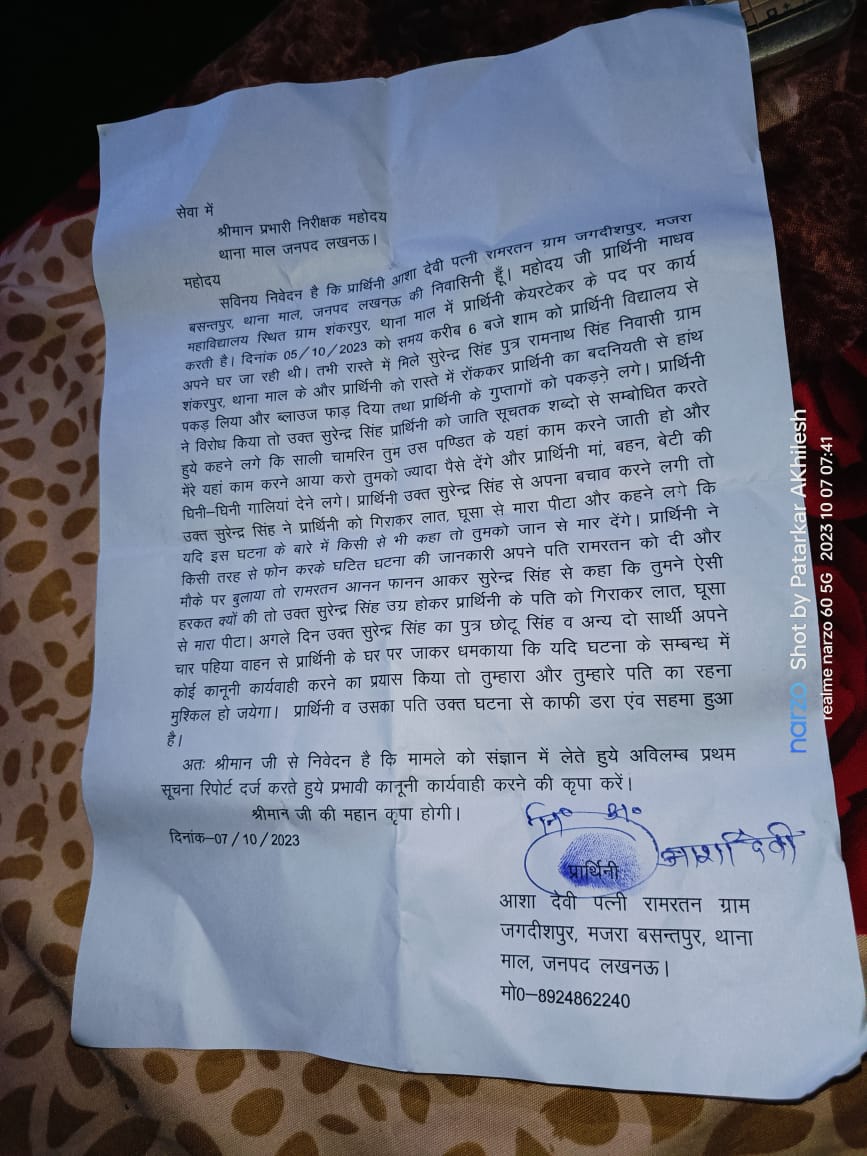 सेवा में
श्रीमान प्रभारी निरीक्षक महोदय
थाना माल जनपद लखनऊ।
महोदय
सविनय निवेदन है कि प्रार्थिनी आशा देवी पत्नी रामरतन ग्राम जगदीशपुर, मजरा
बसन्तपुर, थाना माल, जनपद लखनऊ की निवासिनी हूँ। महोदय जी प्रार्थिनी माधव
महाविद्यालय स्थित ग्राम शंकरपुर, थाना माल में प्रार्थिनी केयरटेकर के पद पर कार्य
करती है। दिनांक 05/10/2023 को समय करीब 6 बजे शाम को प्रार्थिनी विद्यालय से
अपने घर जा रही थी। तभी रास्ते में मिले सुरेन्द्र सिंह पुत्र रामनाथ सिंह निवासी ग्राम
शंकरपुर, थाना माल के और प्रार्थिनी को रास्ते में रोंककर प्रार्थिनी का बदनियती से हांथ
पकड़ लिया और ब्लाउज फाड़ दिया तथा प्रार्थिनी के गुप्तागों को पकड़ने लगे। प्रार्थिनी
ने विरोध किया तो उक्त सुरेन्द्र सिंह प्रार्थिनी को जाति सूचतक शब्दो से सम्बोधित करते
हुये कहने लगे कि साली चामरिन तुम उस पण्डित के यहां काम करने जाती हो और
मेरे यहां काम करने आया करो तुमको ज्यादा पैसे देंगे और प्रार्थिनी मां, बहन, बेटी की
घिनी–घिनी गालियां देने लगे। प्रार्थिनी उक्त सुरेन्द्र सिंह से अपना बचाव करने लगी तो
उक्त सुरेन्द्र सिंह ने प्रार्थिनी को गिराकर लात, घूसा से मारा पीटा और कहने लगे कि
यदि इस घटना के बारे में किसी से भी कहा तो तुमको जान से मार देंगे। प्रार्थिनी ने
किसी तरह से फोन करके घटित घटना की जानकारी अपने पति रामरतन को दी और
मौके पर बुलाया तो रामरतन आनन फानन आकर सुरेन्द्र सिंह से कहा कि तुमने ऐसी
हरकत क्यों की तो उक्त सुरेन्द्र सिंह उग्र होकर प्रार्थिनी के पति को गिराकर लात, घूसा
से मारा पीटा। अगले दिन उक्त सुरेन्द्र सिंह का पुत्र छोटू सिंह व अन्य दो सार्थी अपने
चार पहिया वाहन से प्रार्थिनी के घर पर जाकर धमकाया कि यदि घटना के सम्बन्ध में
कोई कानूनी कार्यवाही करने का प्रयास किया तो तुम्हारा और तुम्हारे पति का रहना
मुश्किल हो जयेगा। प्रार्थिनी व उसका पति उक्त घटना से काफी डरा एंव सहमा हुआ
है।
अतः श्रीमान जी से निवेदन है कि मामले को संज्ञान में लेते हुये अविलम्ब प्रथम
सूचना रिपोर्ट दर्ज करते हुये प्रभावी कानूनी कार्यवाही करने की कृपा करें।
श्रीमान जी की महान कृपा होगी।
दिनांक–07/10/2023
नि० अ०
आशा देवी
प्रार्थिनी
आशा देवी पत्नी रामरतन ग्राम
जगदीशपुर, मजरा बसन्तपुर, थाना
माल, जनपद लखनऊ।
मो0–8924862240
narzo Shot by Patarkar Akhilesh
realme narzo 60 5G 2023 10 07 07:41